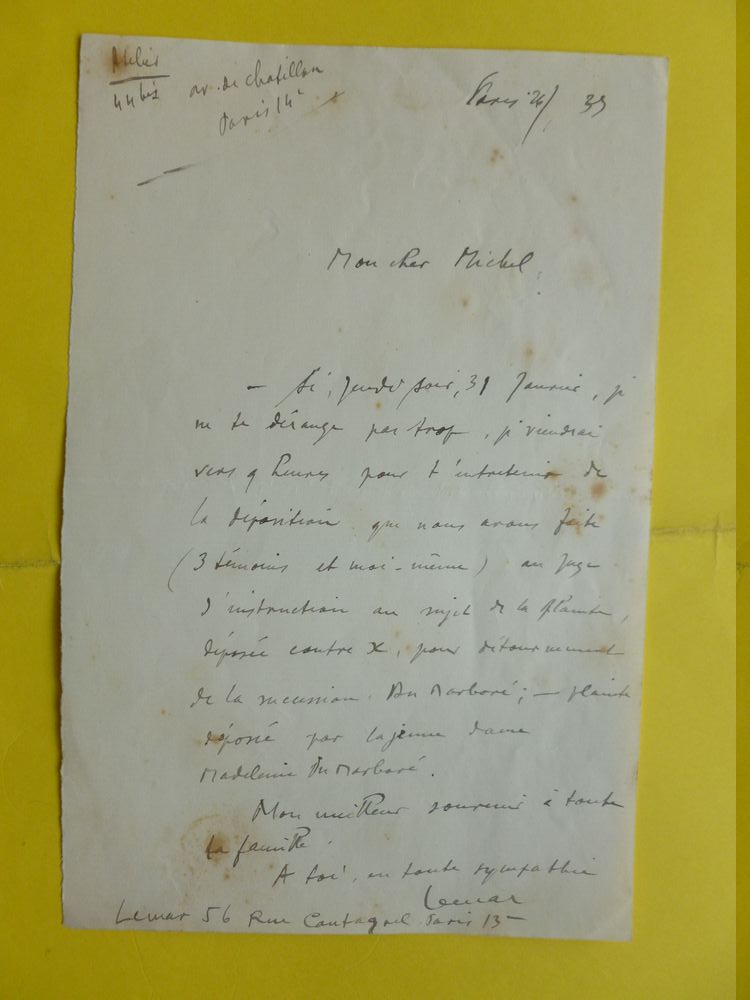 Atelier
44 bis av. de chatillon
Paris 14e
Paris 26/ 35
Mon cher Michel,
— Si, Jeudi soir, 31 Janvier, je
ne te dérange pas trop, je viendrai
vers 9 heures pour t'entretenir de
la déposition que nous avons faite
(3 témoins et moi-même) au Juge
d'instruction au sujet de la plainte,
déposée contre X, pour détournement
de la succession Du Marboré; — plainte
déposée par la jeune dame
Madeleine Du Marboré.
Mon meilleur souvenir à toute
la famille.
A toi, en toute sympathie
Lemar
Lemar 56 Rue Cantagrel Paris 13—